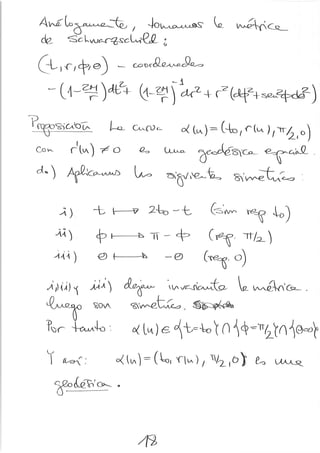 Análogamente, tomamos la métrica
de Schwarzschild:
(t, r, φ, θ) - coordenadas
-(1-2M/r)dt²+(1-2M/r)⁻¹dr²+r²(dφ²+sen²φdθ²)
Proposición La curva α(u)=(t₀,r(u),π/2,0)
con r'(u)≠0 es una geodésica espacial.
d.) Aplicamos las siguientes simetrías:
i) t ↦ 2t₀-t (sim resp t₀)
ii) φ ↦ π-φ (resp. π/2)
iii) θ ↦ -θ (resp. 0)
i), ii) y iii) dejan invariante la métrica.
luego son simetrías.
Por tanto: α(u)∈{t=t₀}∩{φ=π/2}∩{θ=0}
Y así: α(u)=(t₀, r(u), π/2, 0) es una
geodésica.
18